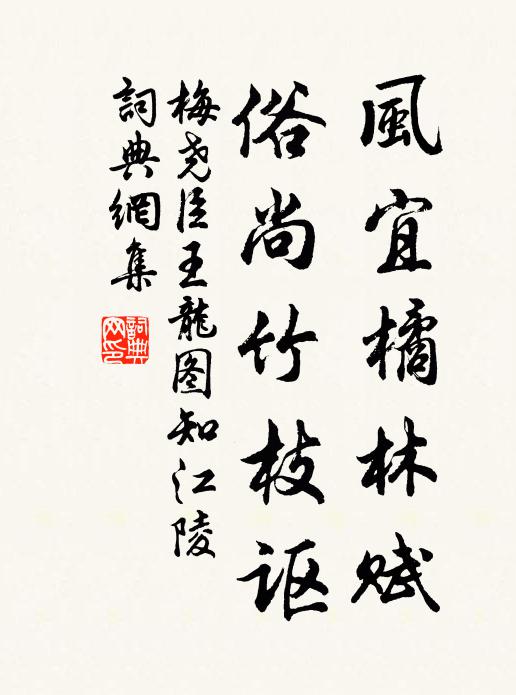 風宜橘林赋
俗尚竹枝讴
梅尧臣王龍图知江陵
詞典網集
詞典网印